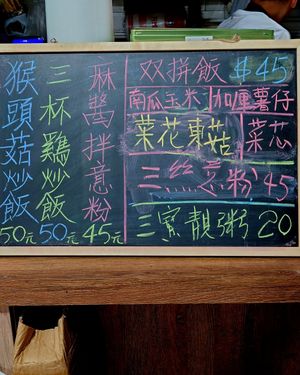 猴頭菇炒飯
50元
三杯鷄炒飯
50元
麻醬拌意粉
45元
双拼飯 $45
南瓜玉米 加厘薯仔
菜花東菇 菜芯
三丝炒粉 45
三寳靚粥 20